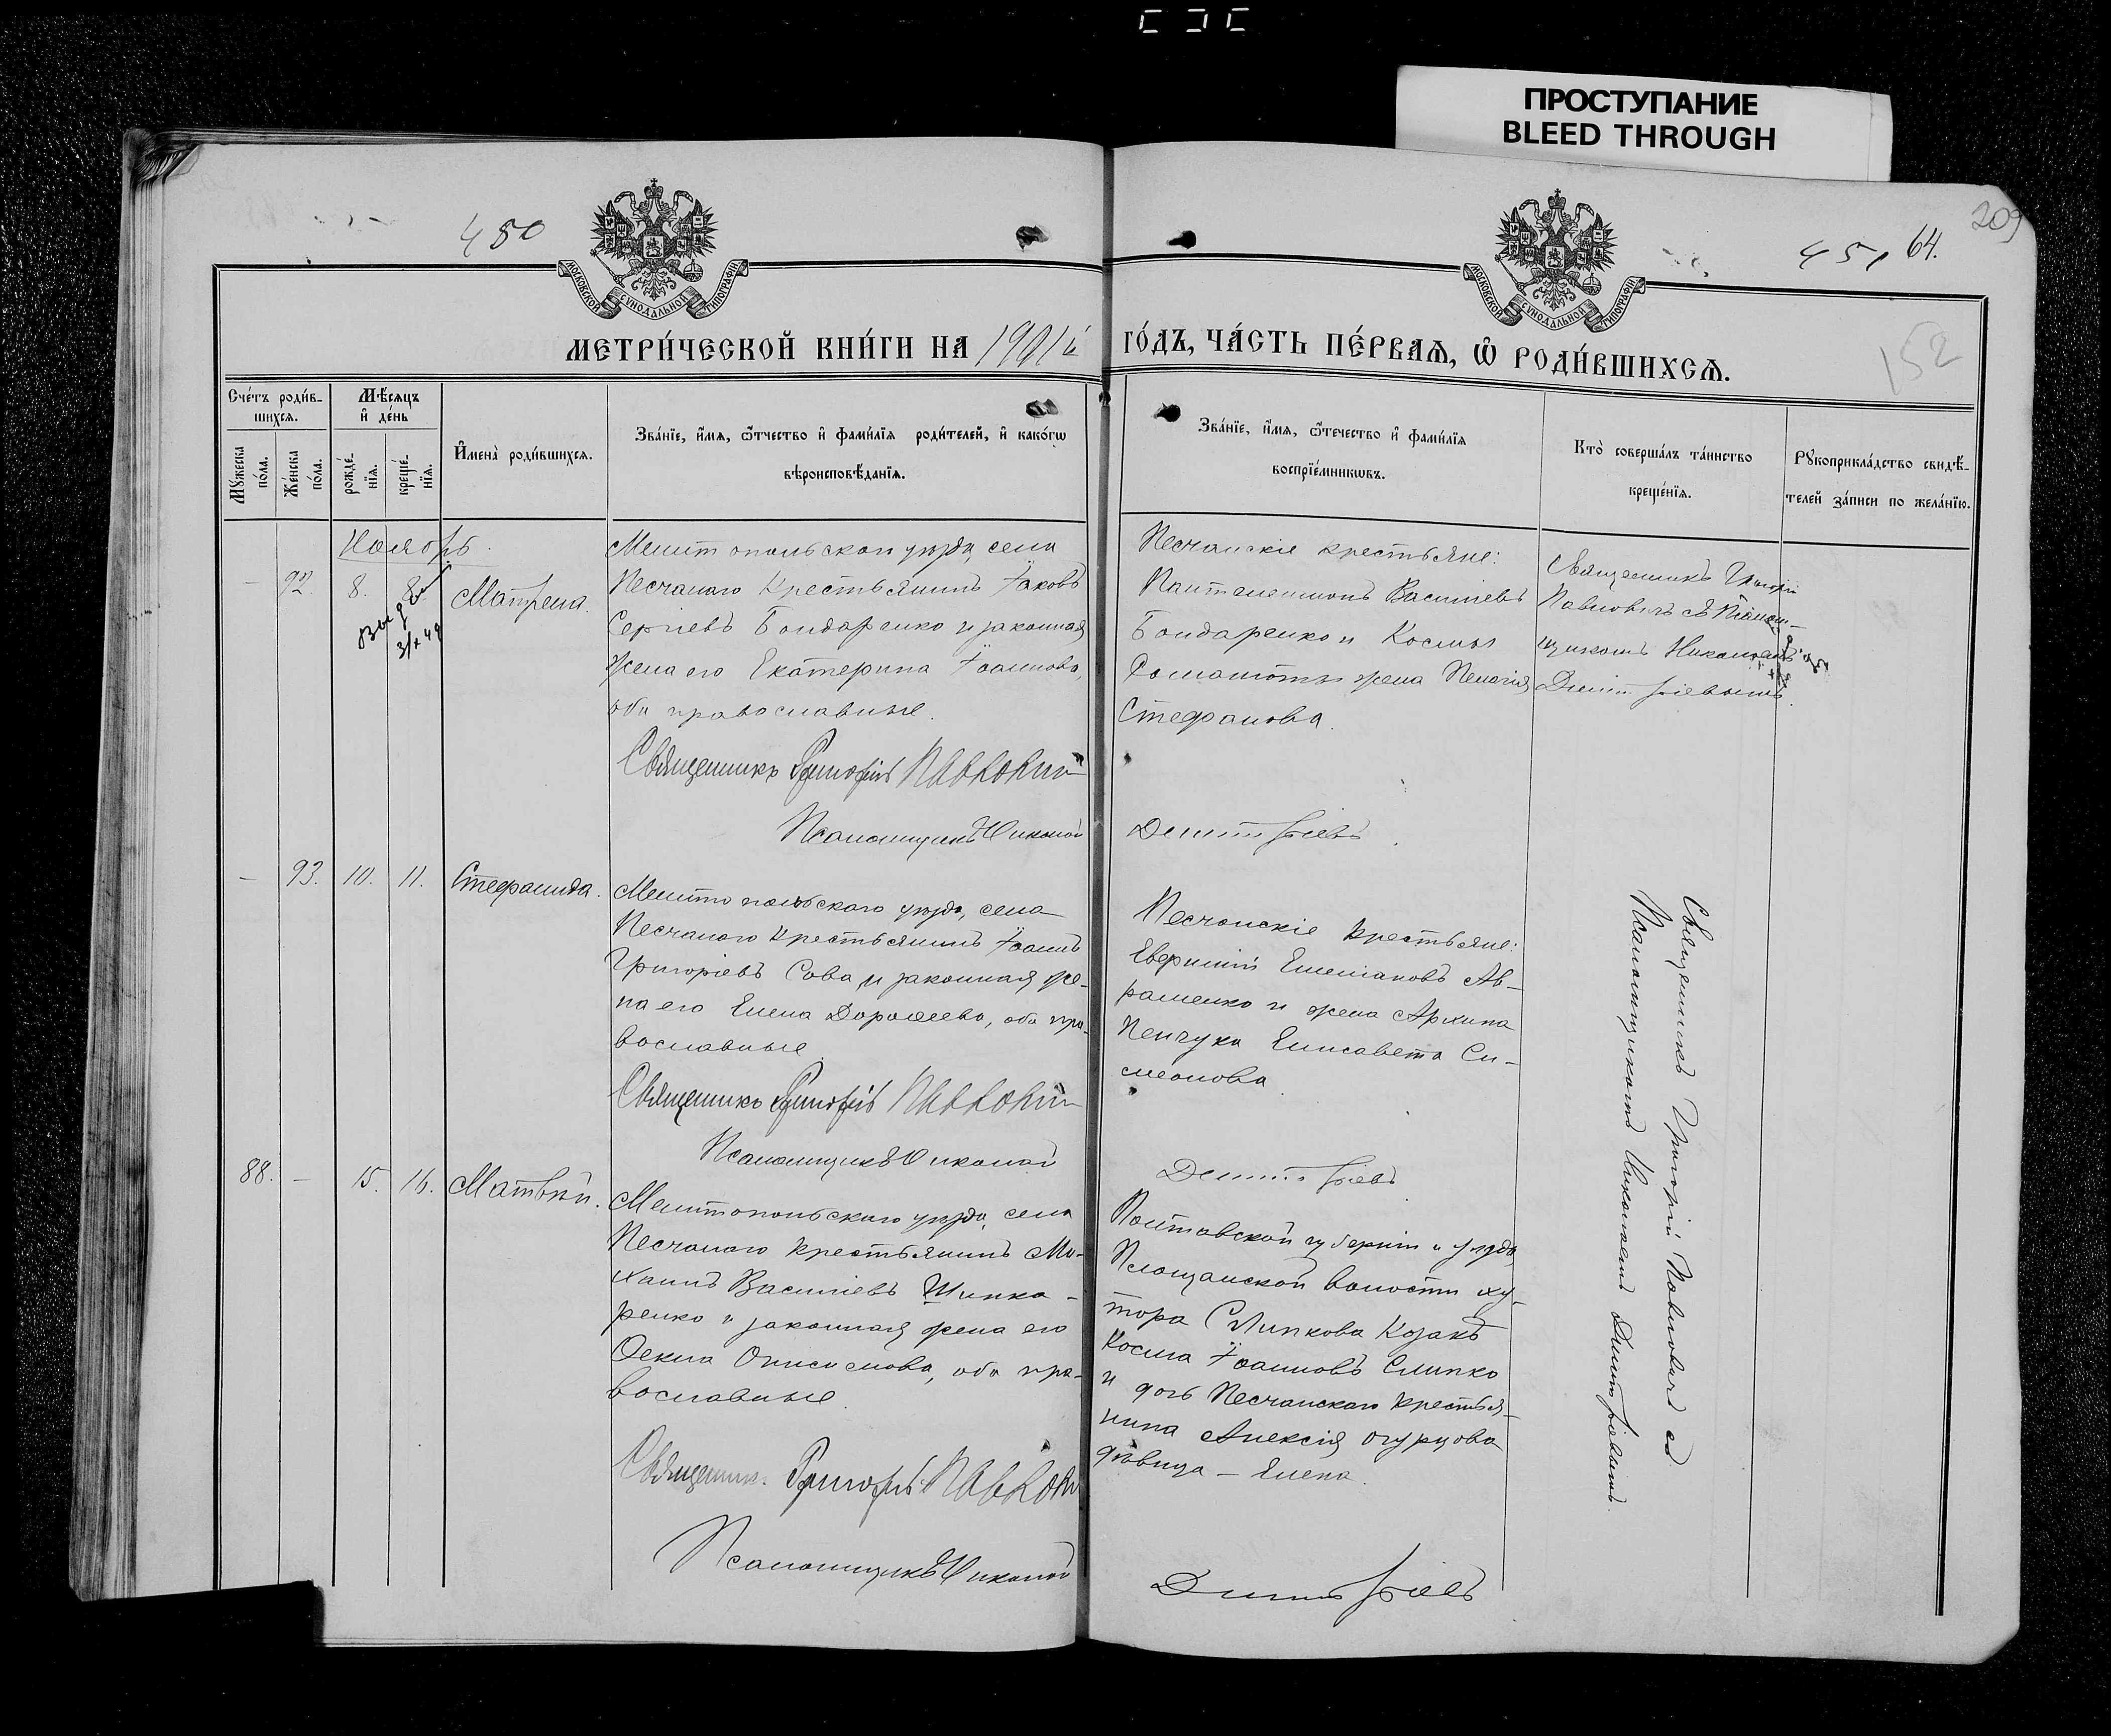 ПРОСТУПАНИЕ
BLEED THROUGH
209
450
451 64.
152
МОСКОВСКОЙ СѴНОДАЛЬНОЙ ТИПОГРАФІИ
МОСКОВСКОЙ СѴНОДАЛЬНОЙ ТИПОГРАФІИ
МЕТРИ́ЧЕСКОЙ КНИ́ГИ НА 1901й
ГО́ДЪ, ЧА́СТЬ ПЕ́РВАѦ, Ѡ҆ РОДИ́ВШИХСѦ.
Сче́тъ роди́в-
шихсѧ.
Мѣ́сѧцъ
и҆ де́нь
Мꙋ́жеска по́ла.
Же́нска по́ла.
рожде́-
нїѧ.
креще́-
нїѧ.
И҆мена̀ роди́вшихсѧ.
Зва́нїе, и҆́мѧ, ѻ҆́тчество и҆ фами́лїѧ роди́телей, и҆ како́гѡ
вѣроисповѣ́данїѧ.
Зва́нїе, и҆́мѧ, ѻ҆́течество и҆ фами́лїѧ
воспрїе́мникѡвъ.
Кто̀ соверша́лъ та́инство
креще́нїѧ.
Рꙋкоприкла́дство свидѣ́-
телей за́писи по жела́нїю.
Ноябрь.
— 92. 8. 8. Матрена.
3/X 49
Мелитопольскаго уѣзда, села
Песчанаго крестьянинъ Іаковъ
Сергіевъ Бондаренко и законная
жена его Екатерина Іоаннова,
оба православные.
Священникъ Григорій Павловичъ
Псаломщикъ Николай
Песчанскіе крестьяне:
Пантелеимонъ Васильевъ
Бондаренко и Космы
жена Пелагія
Стефанова.
Димитріевъ
Священникъ Григорій
Павловичъ съ Псалом-
щикомъ Николаемъ
Димитріевымъ.
— 93. 10. 11. Стефанида.
Мелитопольскаго уѣзда, села
Песчанаго крестьянинъ Іоаннъ
Григоріевъ Сова и законная же-
на его Елена Дороѳеева, оба пра-
вославные.
Священникъ Григорій Павловичъ
Псаломщикъ Николай
Песчанскіе крестьяне:
Ав-
раменко и жена Архипа
Пенчука Елисавета Си-
меонова.
Димитріевъ
Священникъ Григорій Павловичъ съ
Псаломщикомъ Николаемъ Димитріевымъ.
88. — 15. 16. Матвѣй.
Мелитопольскаго уѣзда, села
Песчанаго крестьянинъ Ми-
хаилъ Васильевъ Шинка-
ренко и законная жена его
Ѳекла Онисимова, оба пра-
вославные.
Священникъ Григорій Павловичъ
Псаломщикъ Николай
Полтавской губерніи и уѣзда,
волости ху-
тора Слипкова козакъ
Косма Іоанновъ Слипко
и дочь Песчанскаго крестья-
нина Алексія Огурцова
дѣвица — Елена.
Димитріевъ